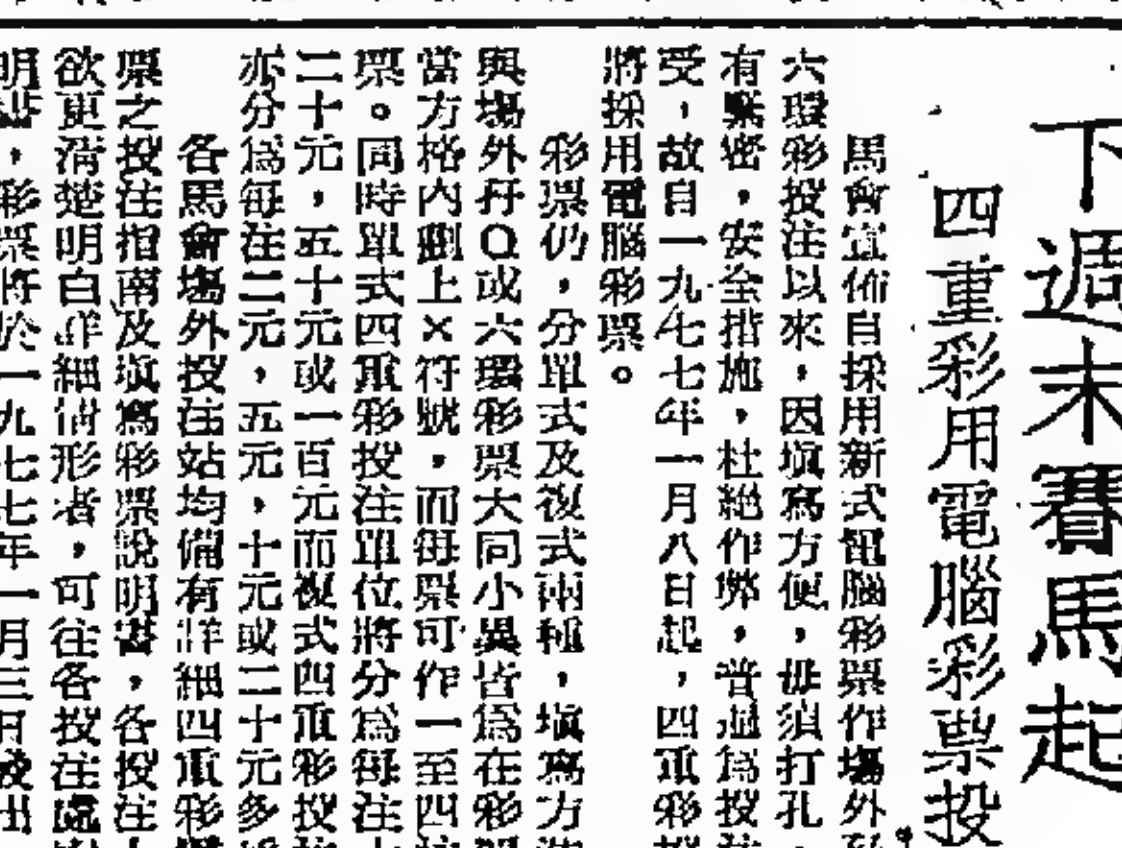 下週末賽馬起
四重彩用電腦彩票投
馬會宣佈自採用新式電腦彩票作塲外
六環彩投注以來，因塡寫方便，毋須打孔，
有緊密，安全措施，杜絕作弊，普遍爲投注
受，故自一九七七年一月八日起，四重彩投
將採用電腦彩票。
彩票仍，分單式及複式兩種，塡寫方
與塲外孖Q或六環彩票大同小異皆爲在彩票
當方格內劃上×符號，而每票可作一至四注
票。同時單式四重彩投注單位將分爲每注
二十元，五十元或一百元而複式四重彩投注
亦分爲每注二元，五元，十元或二十元多
各馬會塲外投注站均備有詳細四重彩
票之投注指南及塡寫彩票說明書，各投注
欲更清楚明白詳細情形者，可往各投注處
明，彩票將於一九七七年一月三日